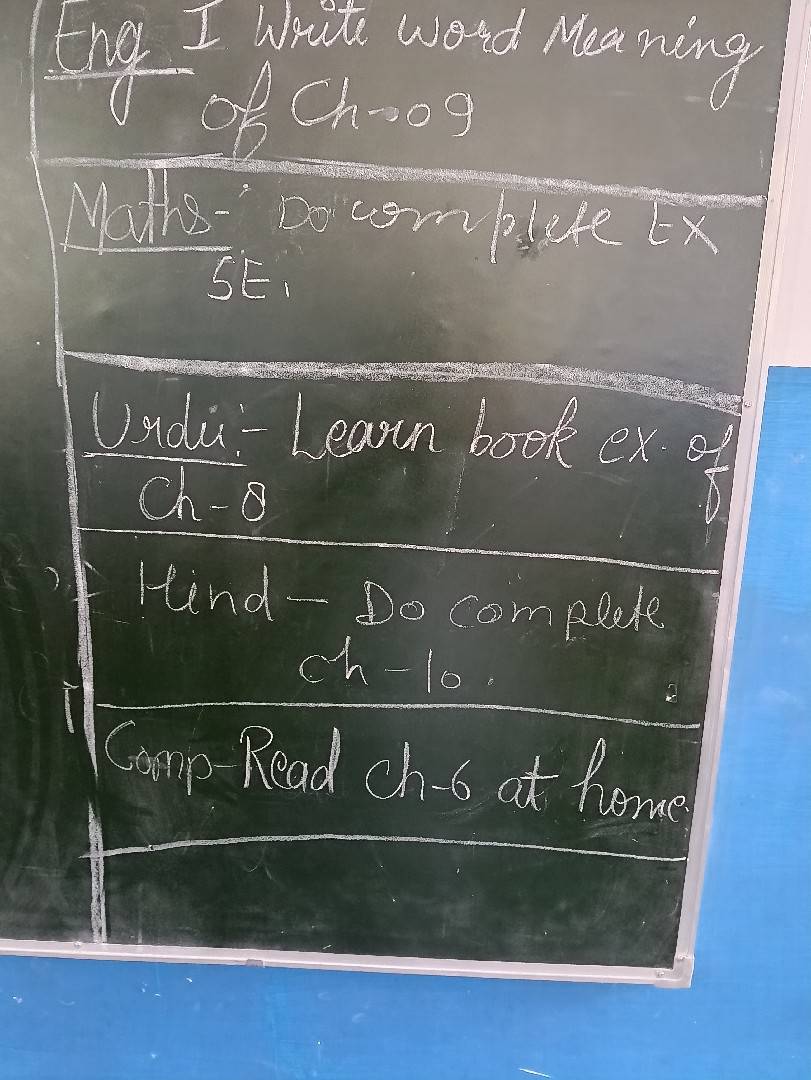 Eng I Write Word Meaning
of Ch-09
Maths- Do complete Ex
5E.
Urdu:- Learn book ex. of
Ch-8
Hind - Do complete
ch-10.
Comp-Read ch-6 at home.